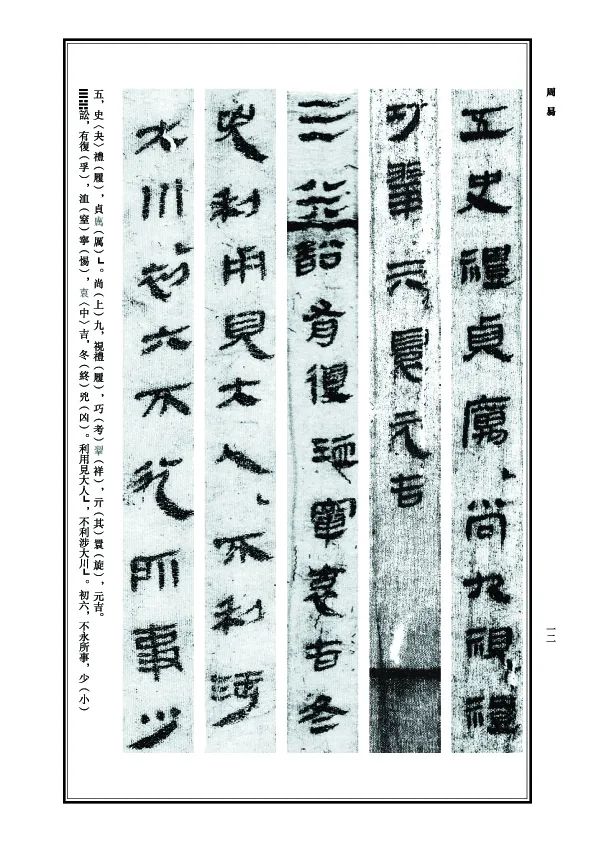 周易
五史禮貞厲尚九視禮
巧翬亓睘元吉
訟有復洫寧衷吉冬
兇利用見大人不利涉
大川初六不永所事少
五,史〈夬〉禮(履),貞厲(厲)┗。尚(上)九,視禮(履),巧(考)翬(祥),亓(其)睘(旋),元吉。
䷅訟,有復(孚),洫(窒)寧(惕),衷(中)吉,冬(終)兇(凶)。利用見大人┗,不利涉大川┗。初六,不永所事,少(小)
一二